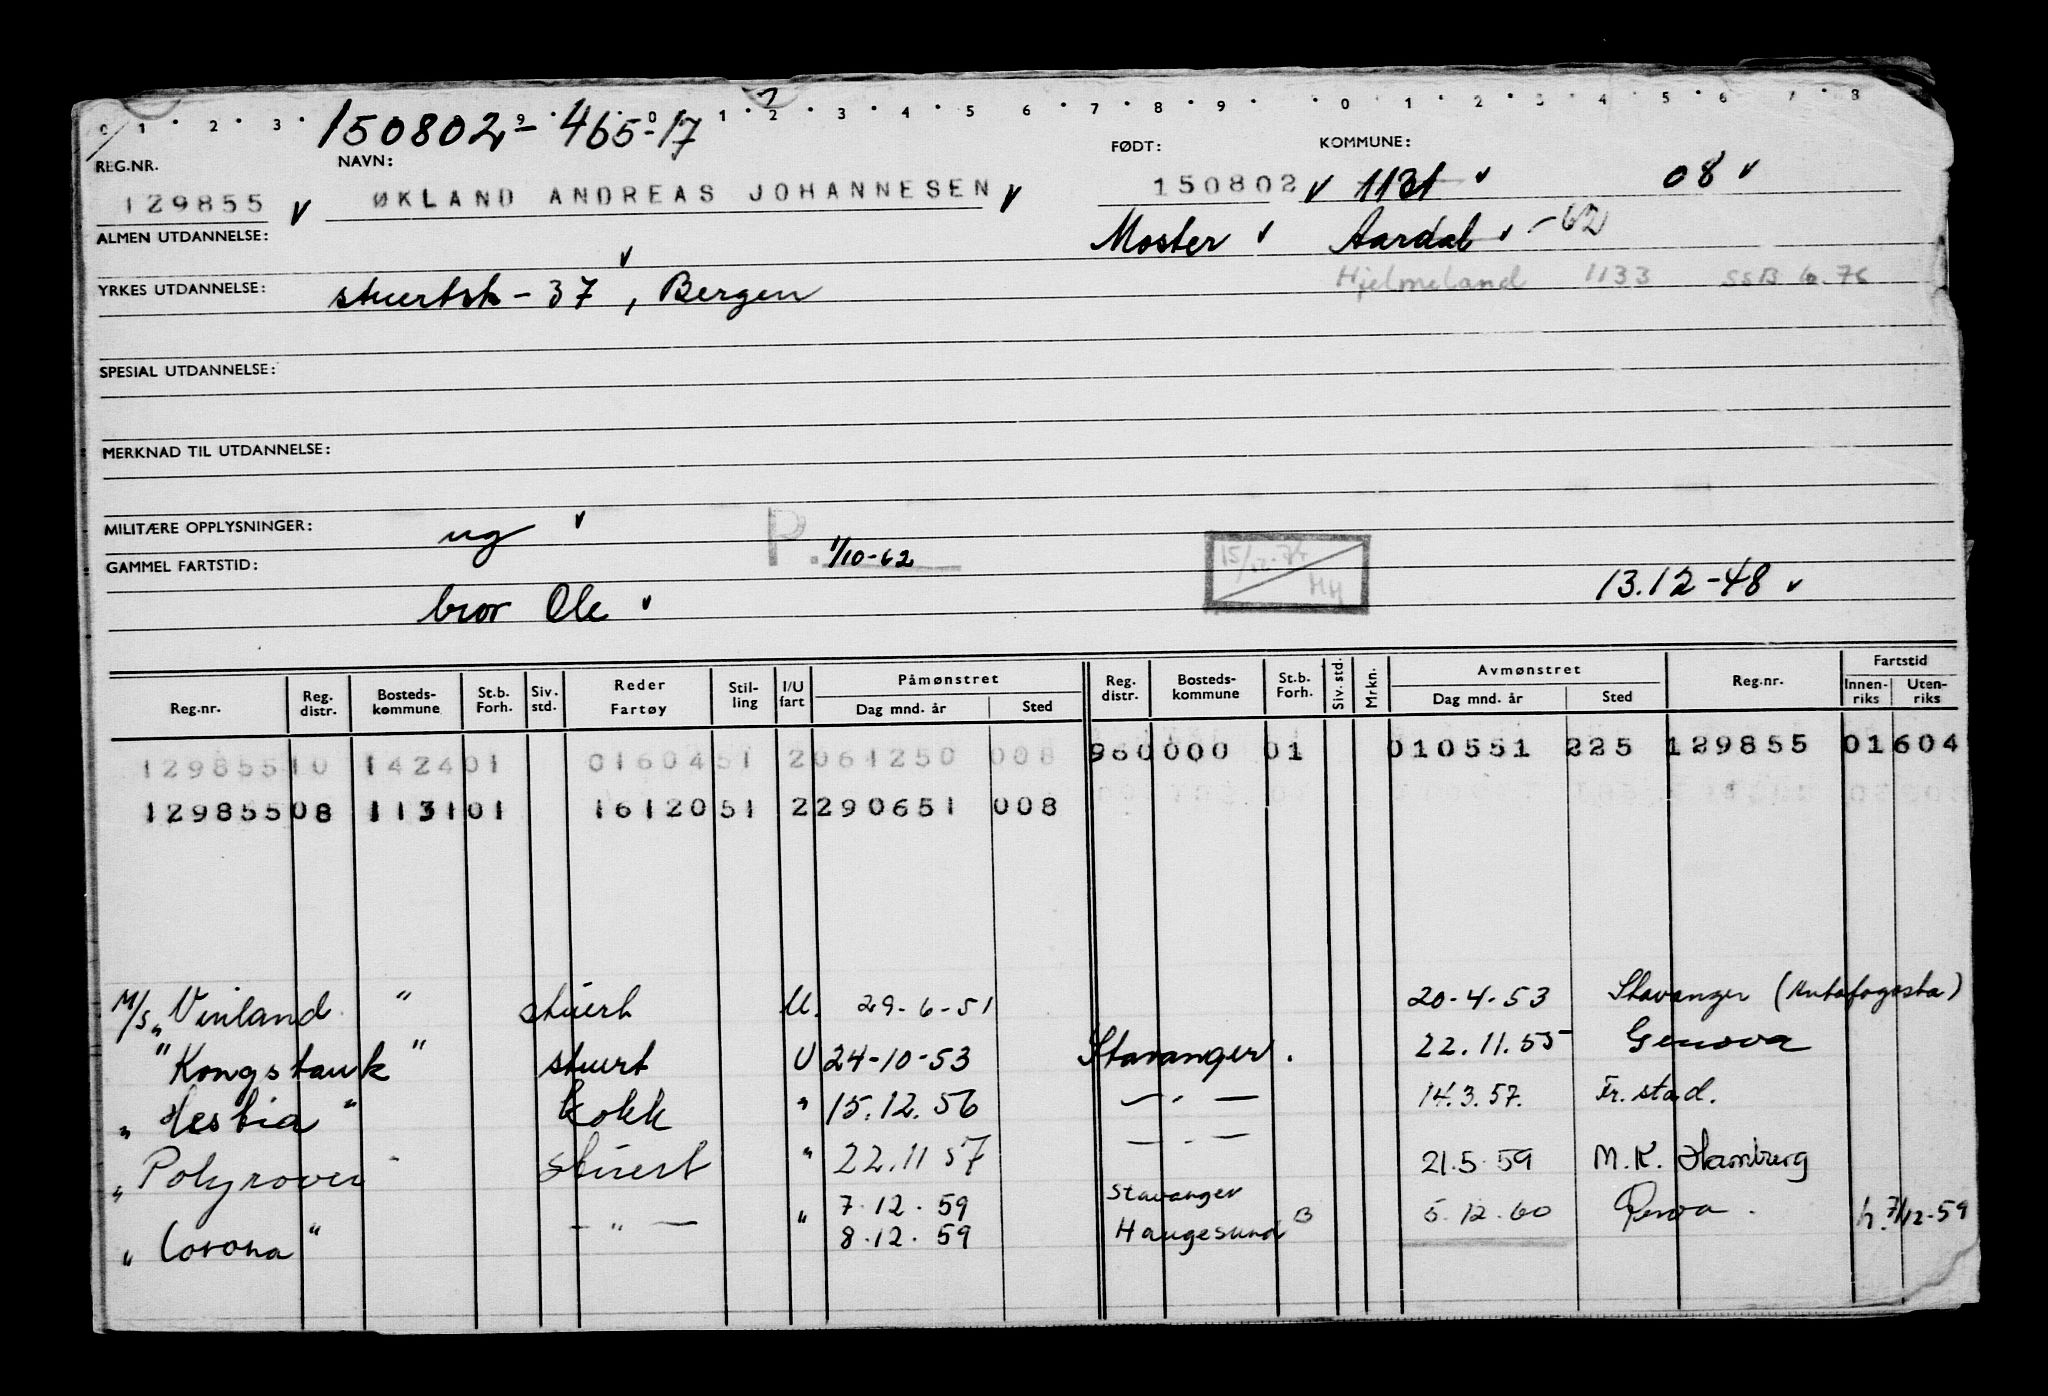 150802 - 465-17
REG.NR. NAVN: FØDT: KOMMUNE:
129855 ØKLAND ANDREAS JOHANNESEN 150802 1131 08
ALMEN UTDANNELSE: Moster Aardal -62
YRKES UTDANNELSE: stuertsk - 37, Bergen Hjelmeland 1133 SSB 6.76
SPESIAL UTDANNELSE:
MERKNAD TIL UTDANNELSE:
MILITÆRE OPPLYSNINGER: ug P. 1/10-62
GAMMEL FARTSTID: bror Ole 13.12-48
Reg.nr. Reg. distr. Bosteds-kommune St.b. Forh. Siv. std. Reder Fartøy Stil-ling I/U fart Påmønstret Dag mnd. år Sted Reg. distr. Bosteds-kommune St.b. Forh. Siv. std. Mrkn. Avmønstret Dag mnd. år Sted Reg.nr. Fartstid Innen-riks Uten-riks
129855 10 1424 01 01604 51 2 061250 008 960 000 01 010551 225 129855 01 604
129855 08 1131 01 16120 51 2 290651 008
M/S "Vinland" stuert U. 29-6-51 20-4-53 Stavanger
"Kongstank" stuert U 24-10-53 Stavanger. 22.11.55 Genova
" Hestia " kokk " 15.12.56 — " — 14.3.57. Fr.stad.
" Polyrover " stuert " 22.11 57 — " — 21.5.59 M.K. Hamburg
" Corona " — " — " 7.12.59 Stavanger 5.12.60
8.12.59 Haugesund B 7/12-59